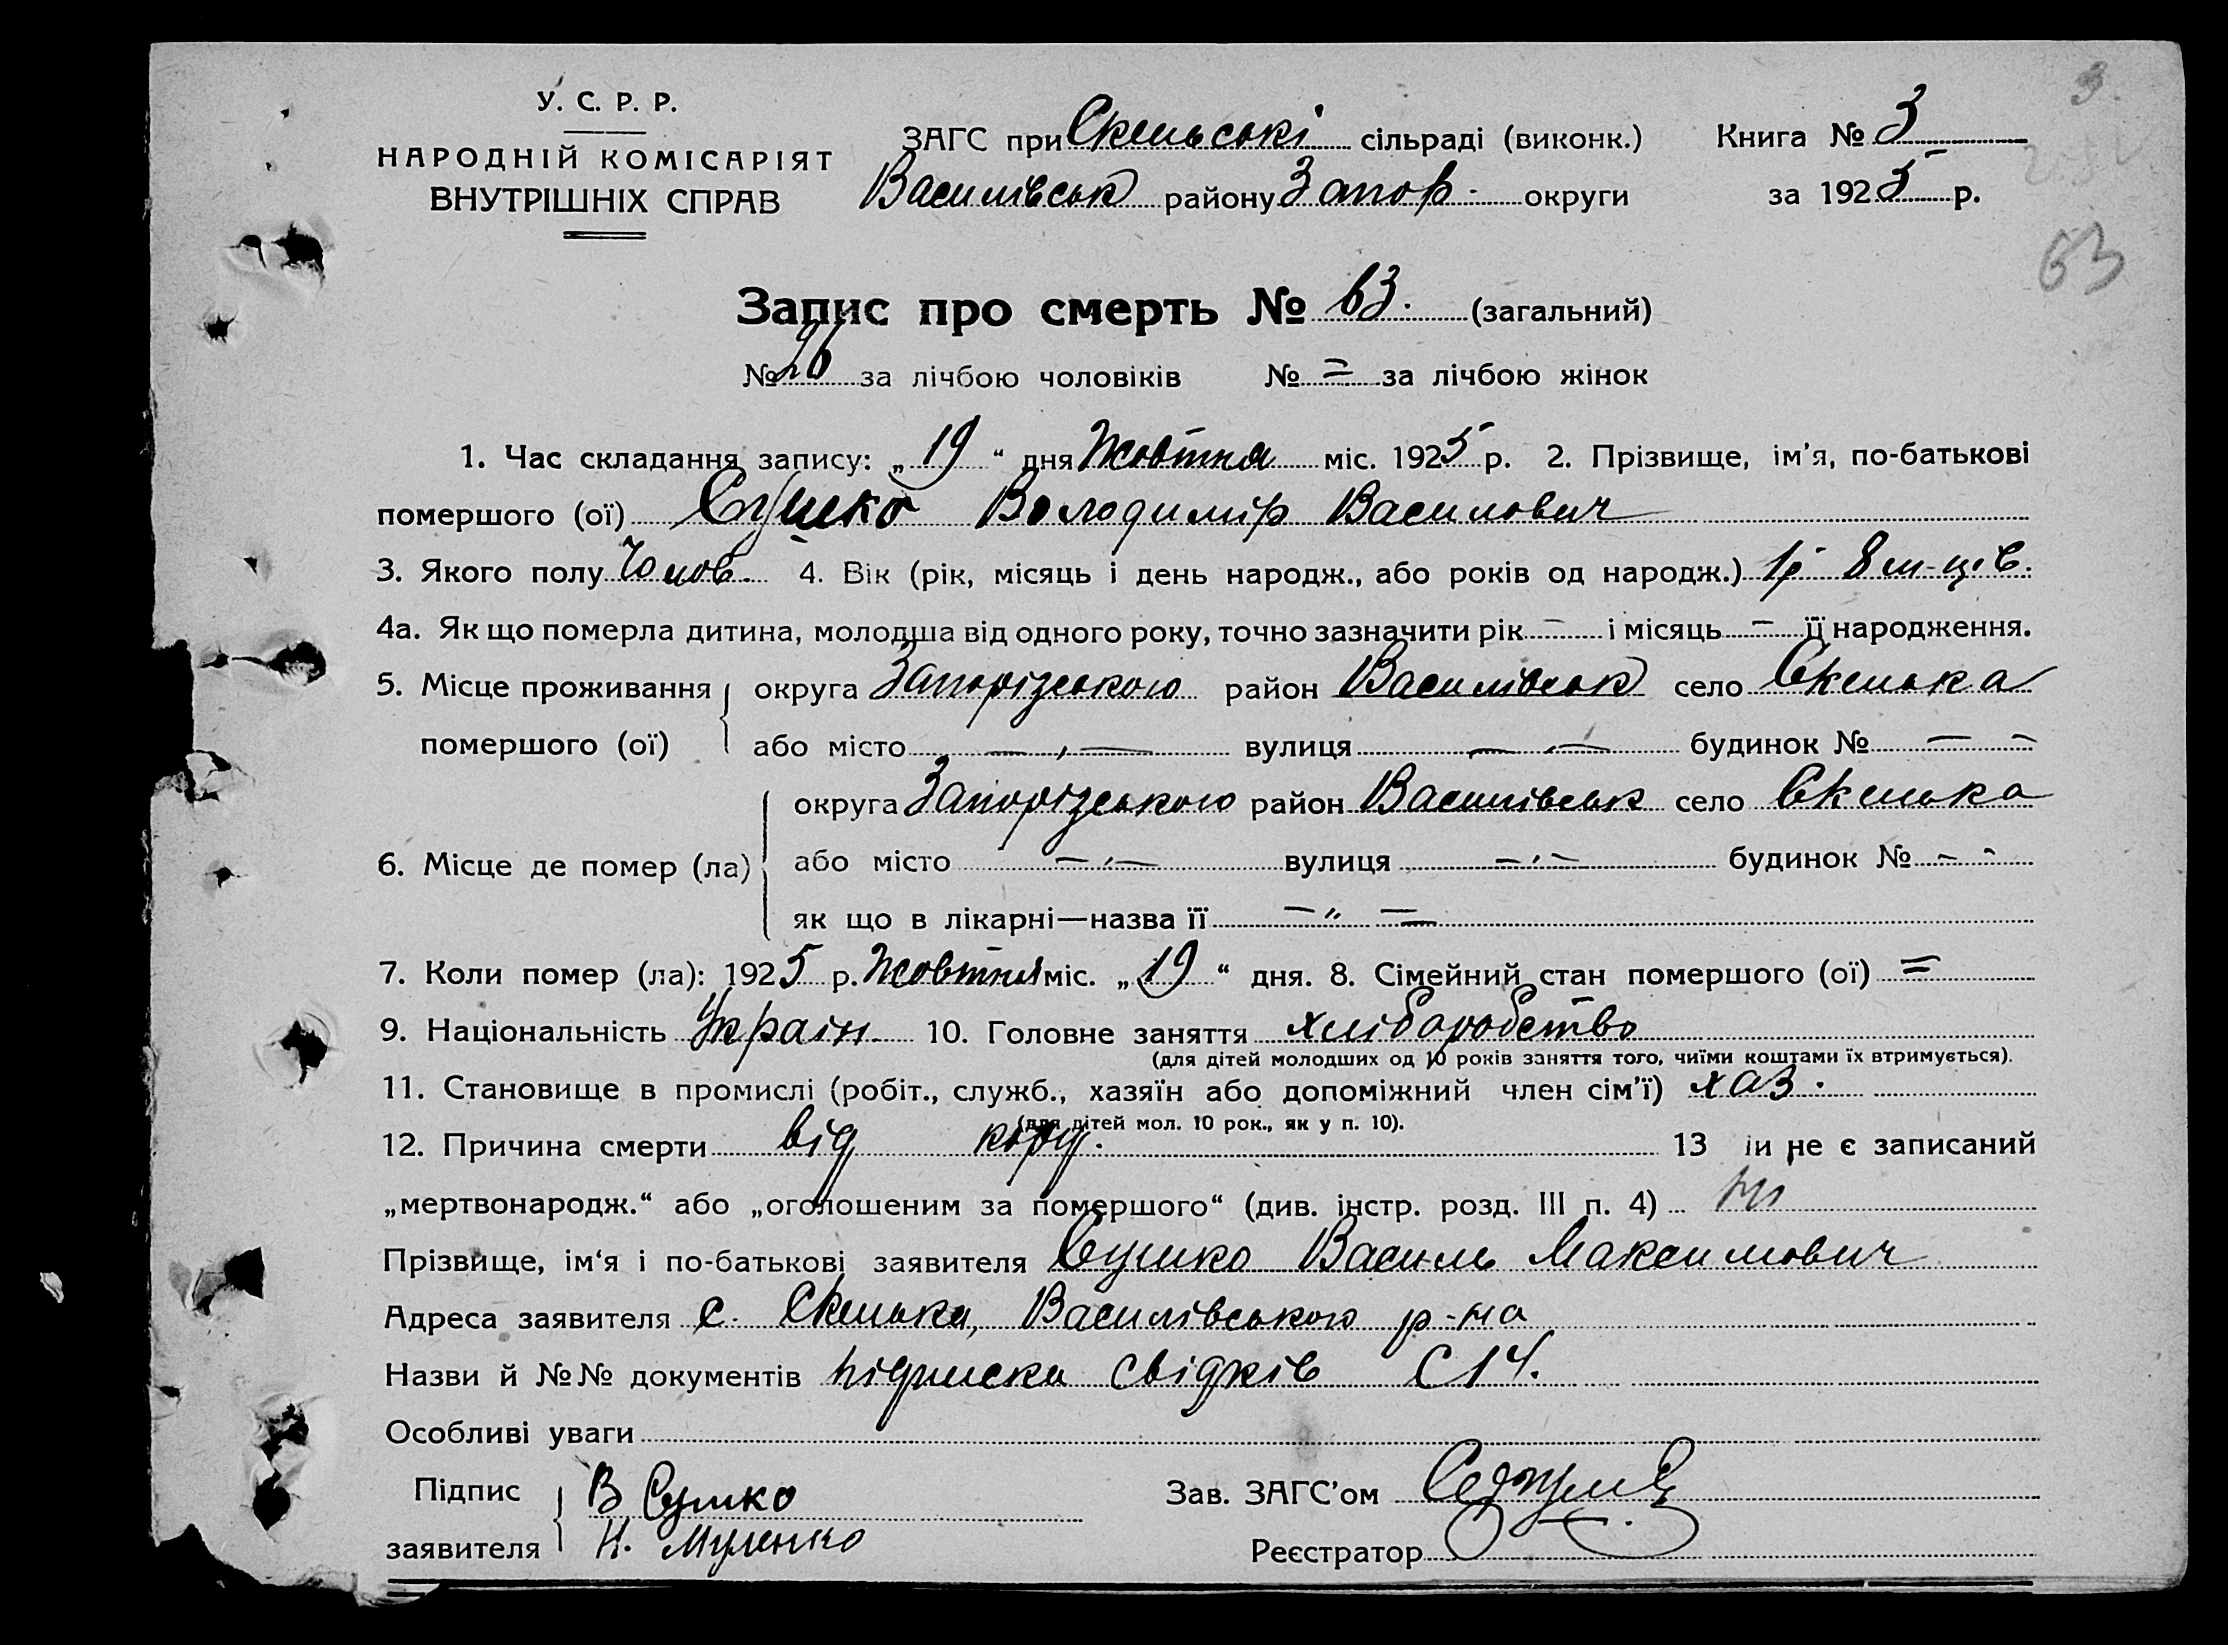 3.
У. С. Р. Р.
НАРОДНІЙ КОМІСАРІЯТ
ВНУТРІШНІХ СПРАВ
ЗАГС при Скельські сільраді (виконк.) Книга № 3
Василівськ району Запор. округи за 1925 р.
63
Запис про смерть № 63. (загальний)
№ 26 за лічбою чоловіків № = за лічбою жінок
1. Час складання запису: „19“ дня Жовтня міс. 1925 р. 2. Прізвище, ім'я, по-батькові
помершого (ої) Сушко Володимір Василович
3. Якого полу Чолов. 4. Вік (рік, місяць і день народж., або років од народж.) 1р 8 м-ців.
4а. Як що померла дитина, молодша від одного року, точно зазначити рік – і місяць – її народження.
5. Місце проживання округа Запорізького район Василівськ село Скелька
помершого (ої) або місто — „ — вулиця — „ — будинок № — –
округа Запорізького район Василівськ село Скелька
6. Місце де помер (ла) або місто — „ — вулиця — „ — будинок № – -
як що в лікарні—назва її — „ —
7. Коли помер (ла): 1925 р. Жовтня міс. „19“ дня. 8. Сімейний стан помершого (ої) =
9. Національність Україн. 10. Головне заняття хліборобство
(для дітей молодших од 10 років заняття того, чиїми коштами їх втримується).
11. Становище в промислі (робіт., служб., хазяїн або допоміжний член сім'ї) хаз.
(для дітей мол. 10 рок., як у п. 10).
12. Причина смерти від кору. 13 и не є записаний
„мертвонародж.“ або „оголошеним за помершого“ (див. інстр. розд. III п. 4) ні
Прізвище, ім'я і по-батькові заявителя Сушко Василь Максимович
Адреса заявителя с. Скелька, Василівського р-на
Назви й №№ документів підписка свідків С 14.
Особливі уваги
Підпис В Сушко Зав. ЗАГС'ом
заявителя Н. Реєстратор